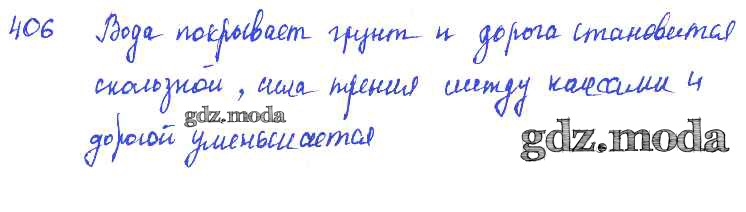 406 Вода покрывает грунт и дорога становится
скользкой, сила трения между колесами и
gdz.moda
дорогой уменьшается
gdz.moda